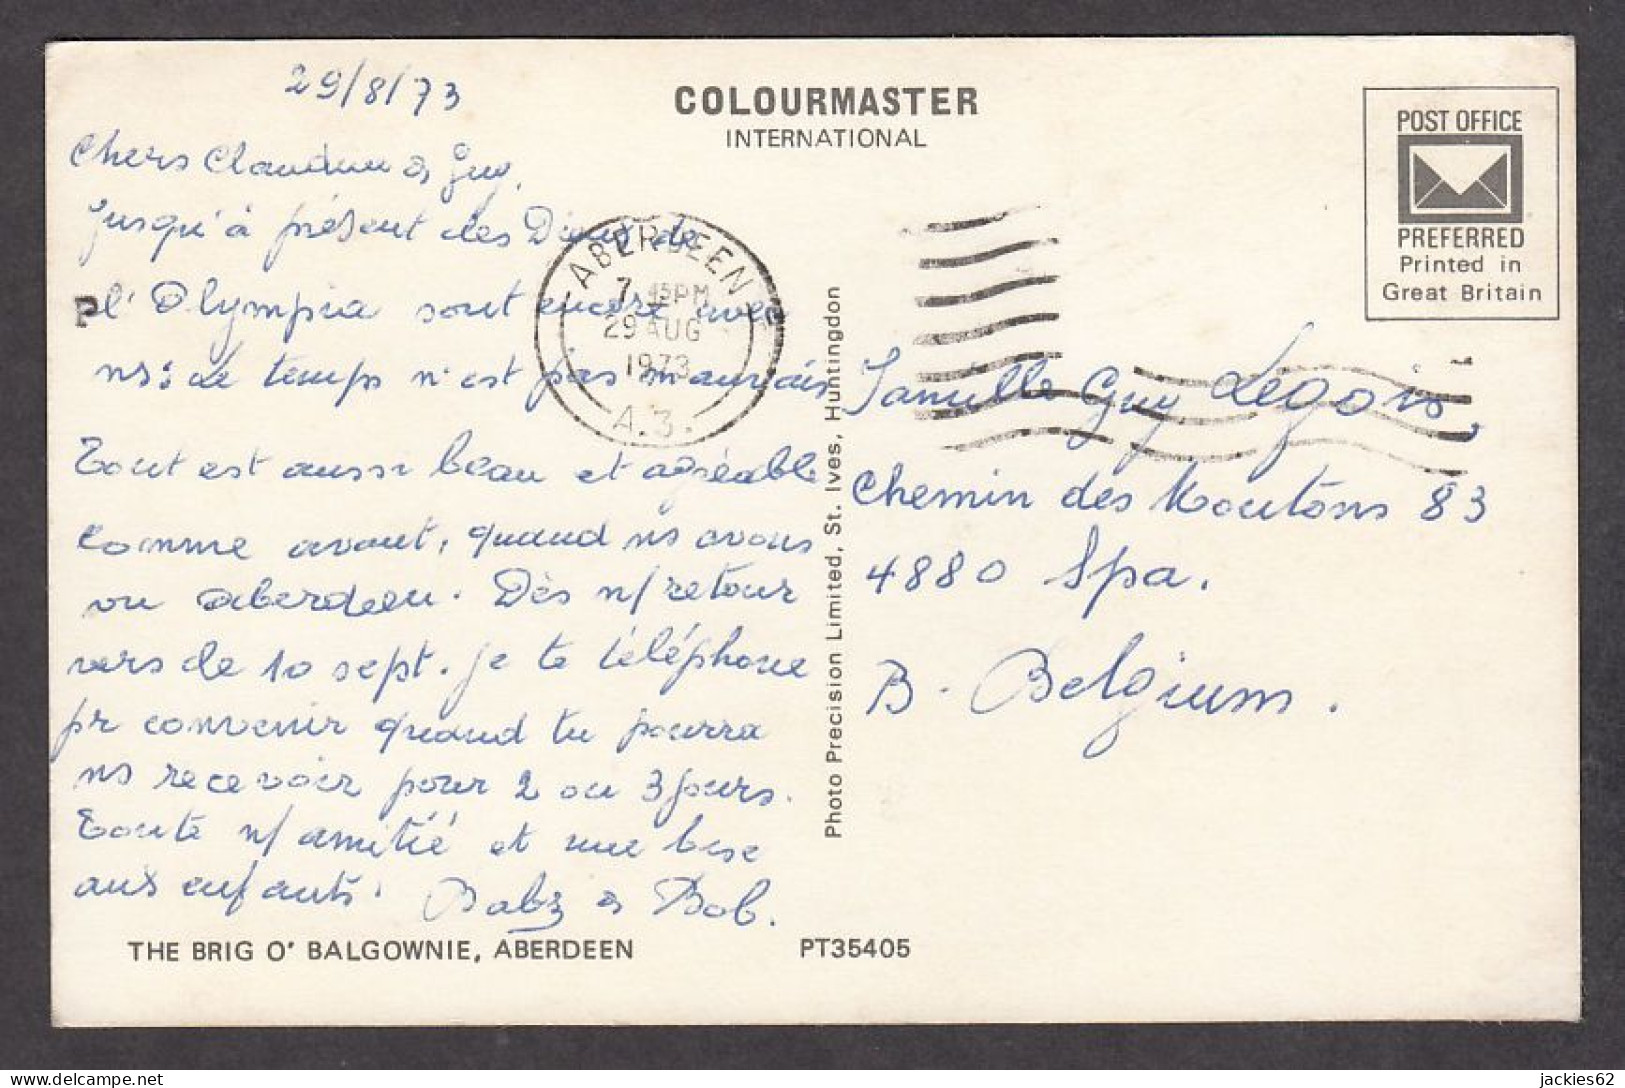 29/8/73
COLOURMASTER
INTERNATIONAL
POST OFFICE
PREFERRED
Printed in
Great Britain
Chers Claudine & Guy,
Jusqu'à présent les Dieux de
l'Olympia sont encore avec
ns: Le temps n'est pas mauvais
Tout est aussi beau et agréable
comme avant, quand ns avons
vu Aberdeen. Dès n/retour
vers le 10 sept. je te téléphone
pr convenir quand tu pourra
ns recevoir pour 2 ou 3 jours.
Toute n/amitié et une bise
aux enfants. Babz & Bob.
P
ABERDEEN
7 45PM
29 AUG
1973
A.3.
Photo Precision Limited, St. Ives, Huntingdon
Famille Guy Legois,
Chemin des Moutons 83
4880 Spa.
B. Belgium.
THE BRIG O' BALGOWNIE, ABERDEEN
PT35405
jackies62